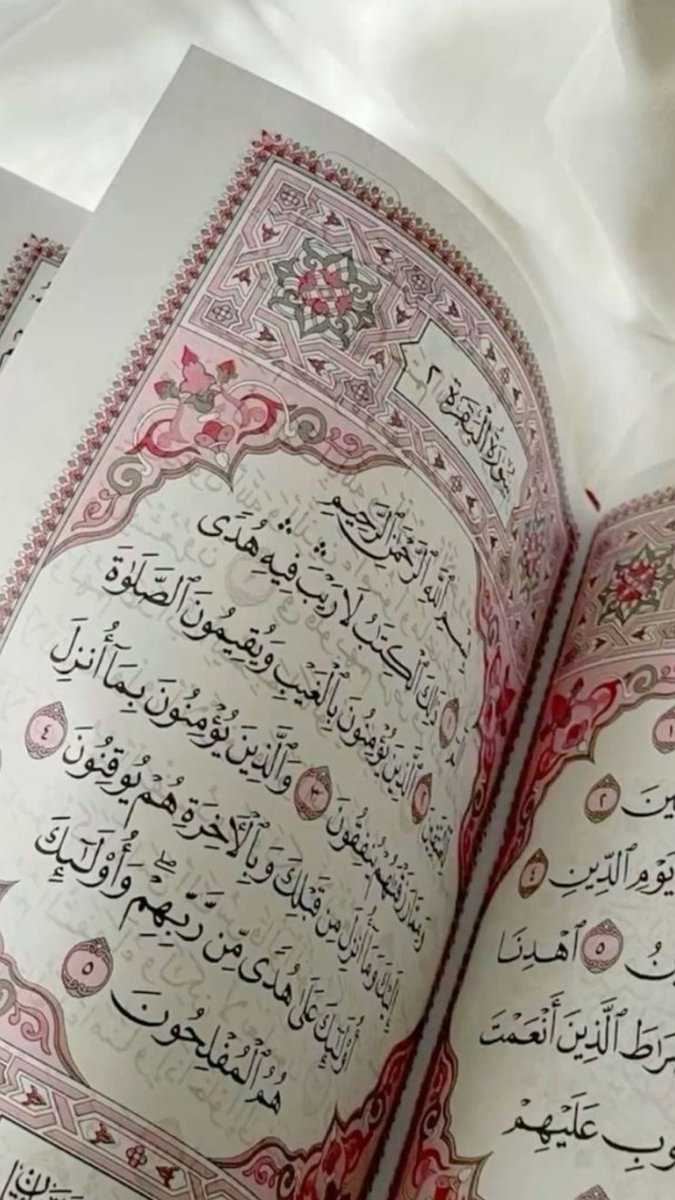 ١
٢
يَوْمِ ٱلدِّينِ ٤
٥ ٱهْدِنَا
ٱلَّذِينَ أَنْعَمْتَ
عَلَيْهِمْ
سُورَةُ البَقَرَةِ ٢
بِسْمِ ٱللَّهِ ٱلرَّحْمَٰنِ ٱلرَّحِيمِ
١ ذَٰلِكَ ٱلْكِتَٰبُ لَا رَيْبَۛ فِيهِۛ هُدًى
لِّلْمُتَّقِينَ ٢ ٱلَّذِينَ يُؤْمِنُونَ بِٱلْغَيْبِ وَيُقِيمُونَ ٱلصَّلَوٰةَ
وَمِمَّا رَزَقْنَٰهُمْ يُنفِقُونَ ٣ وَٱلَّذِينَ يُؤْمِنُونَ بِمَآ أُنزِلَ
إِلَيْكَ وَمَآ أُنزِلَ مِن قَبْلِكَ وَبِٱلْأٓخِرَةِ هُمْ يُوقِنُونَ ٤
أُو۟لَٰٓئِكَ عَلَىٰ هُدًى مِّن رَّبِّهِمْۖ وَأُو۟لَٰٓئِكَ
هُمُ ٱلْمُفْلِحُونَ ٥